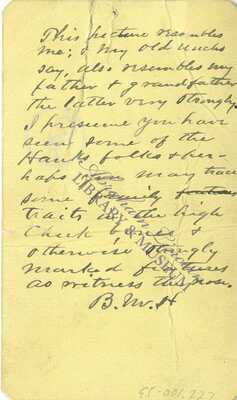 This picture resembles
me; & my old Uncles
say, also resembles my
father & grandfather
the latter very strongly.
I presume you have
seen some of the
Hanks folks & per-
haps you may trace
some family features
traits in the high
Cheek bones &
otherwise strongly
marked features
as witness this nose.
B.M.H
LIBRARY & MUSEUM